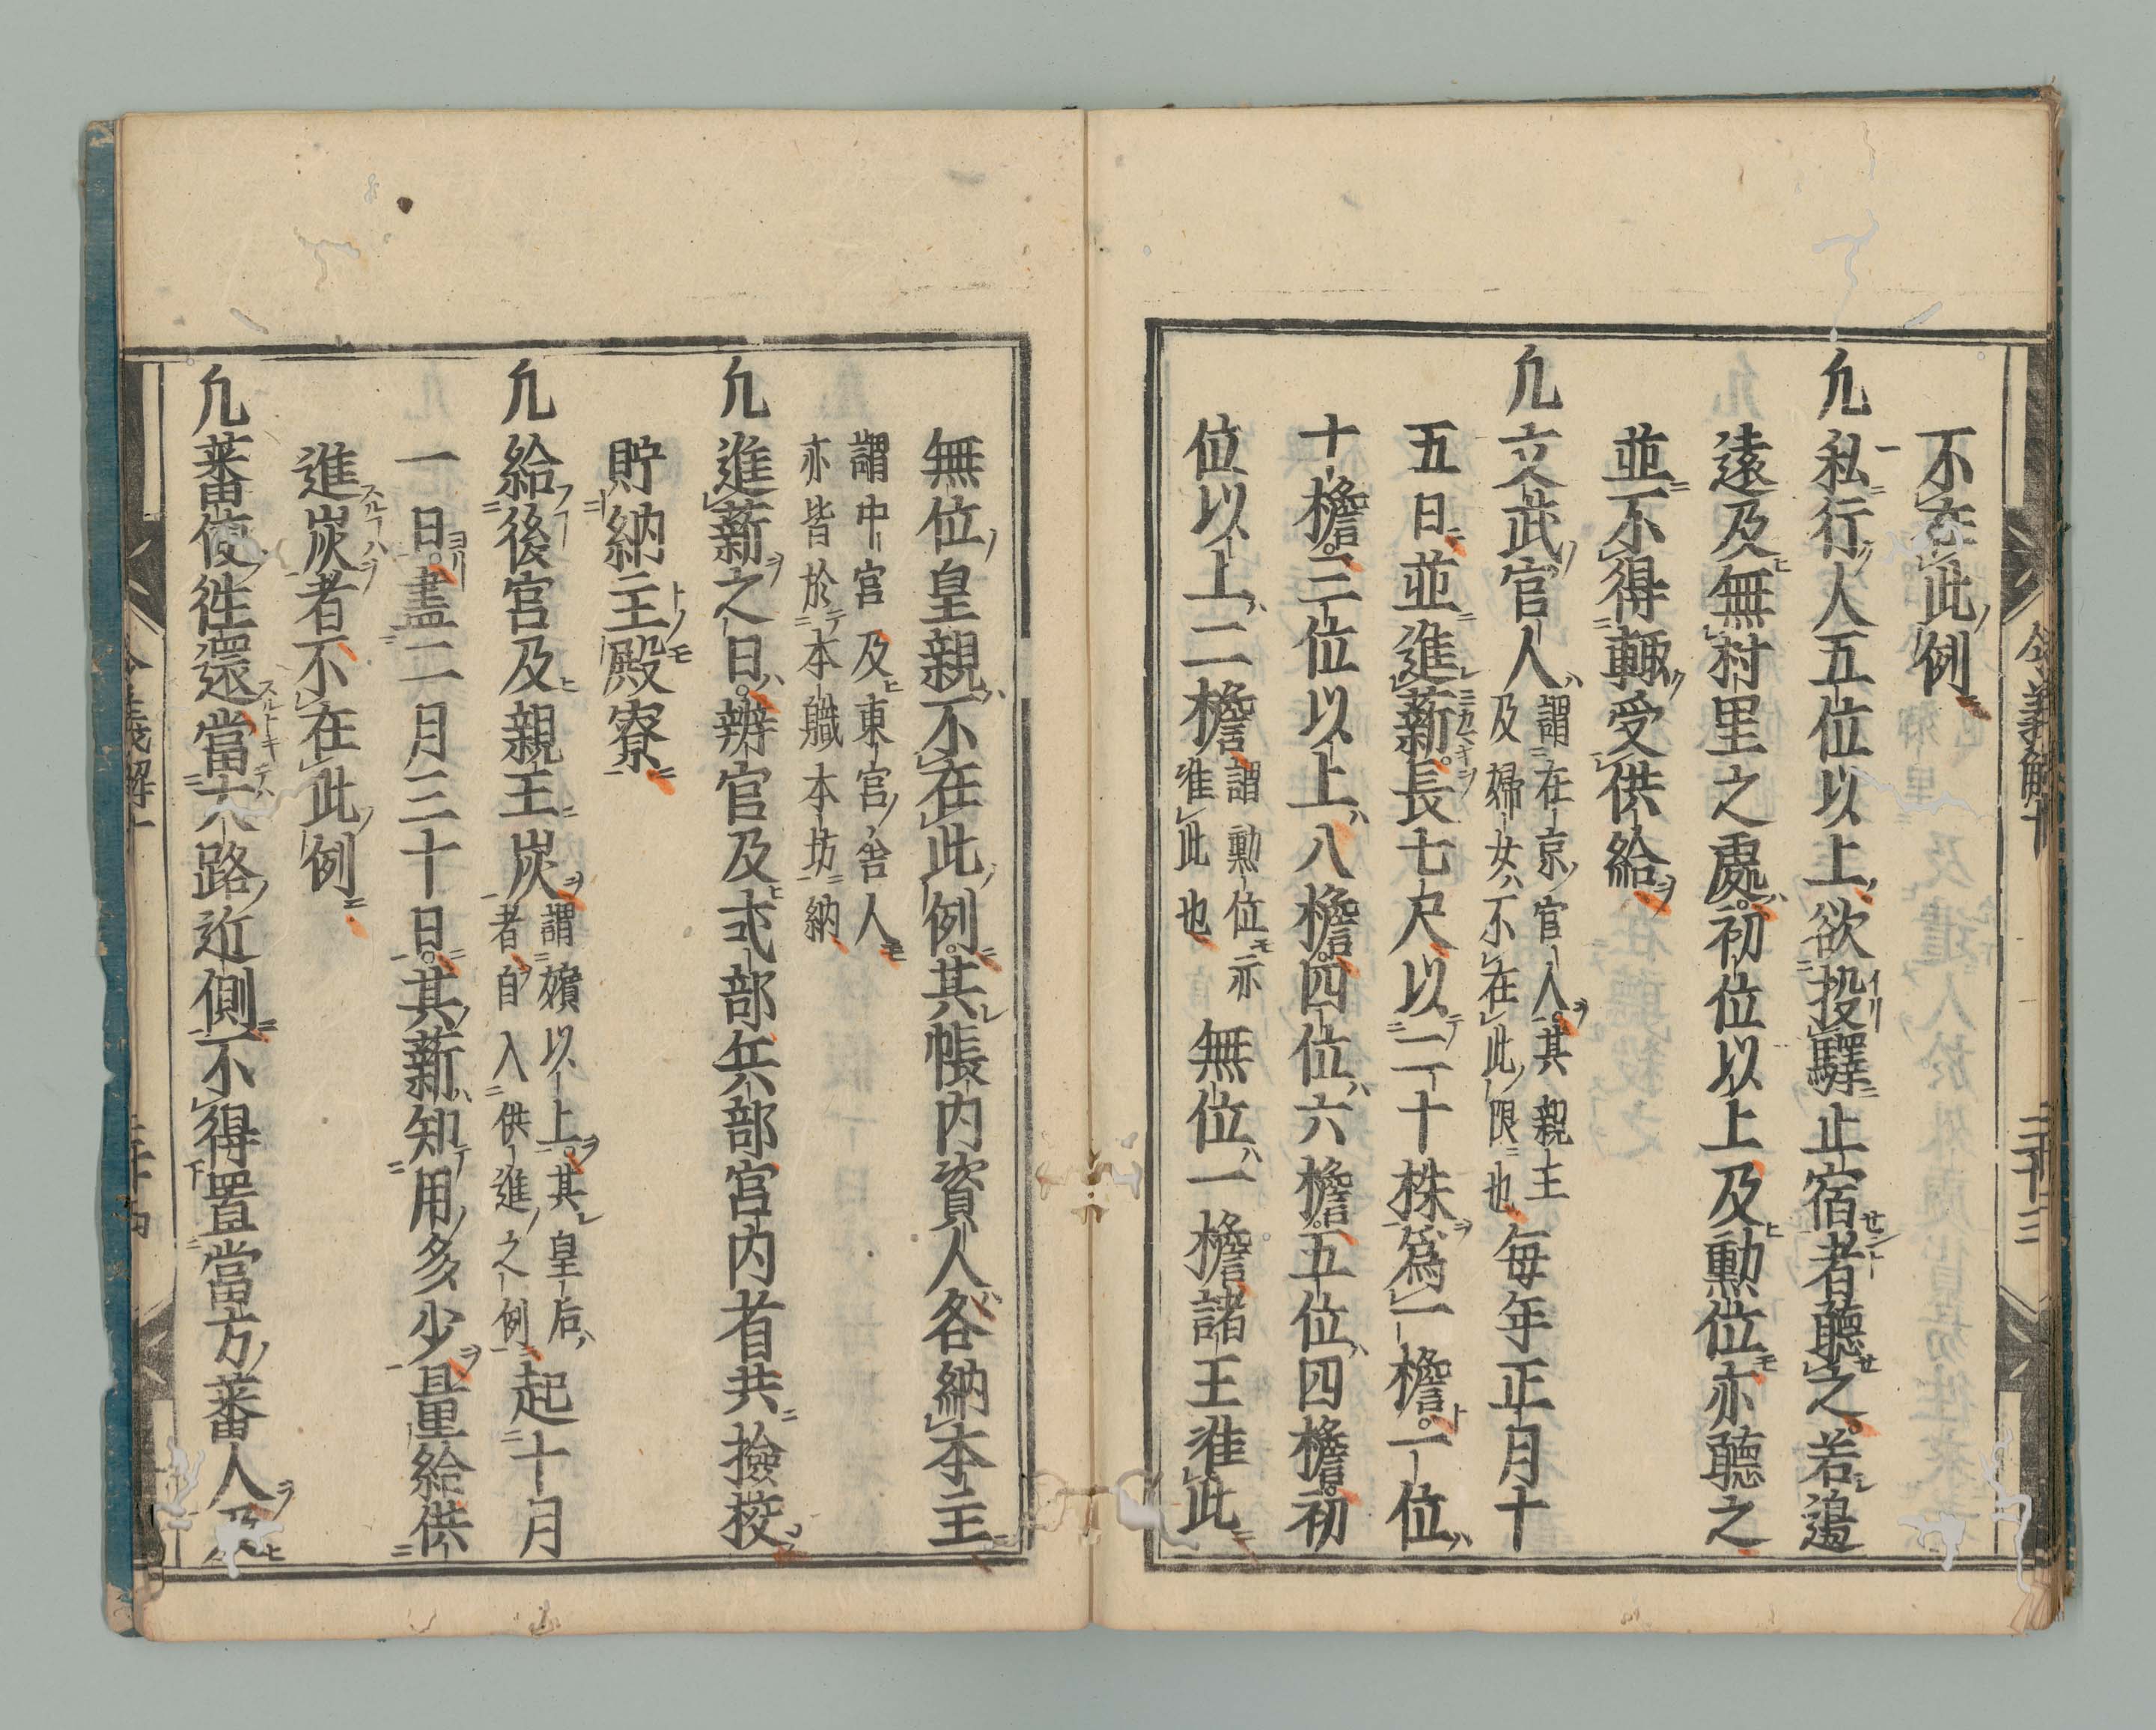 不在此例
凢私行人五位以上欲投驛止宿者聽之若邉
遠及無村里之處初位以上及勳位亦聽之
並不得輙受供給
凢文武官人謂在京官人其親王及婦女不在此限也每年正月十
五日並進薪長七尺以二十株爲一檐一位
十檐三位以上八檐四位六檐五位四檐初
位以上二檐謂勳位亦准此也無位一檐諸王准此
令義解十
三十三
無位皇親不在此例其帳内資人各納本主
謂中官及東官舍人
亦皆於本職本坊納
凢進薪之日辨官及式部兵部宮内省共撿挍
貯納主殿寮
凢給後宮及親王炭謂嬪以上其皇后者自入供進之例起十月
一日盡二月三十日其薪知用多少量給供
進炭者不在此例
凢蕃使徃還當大路近側不得置當方蕃人及